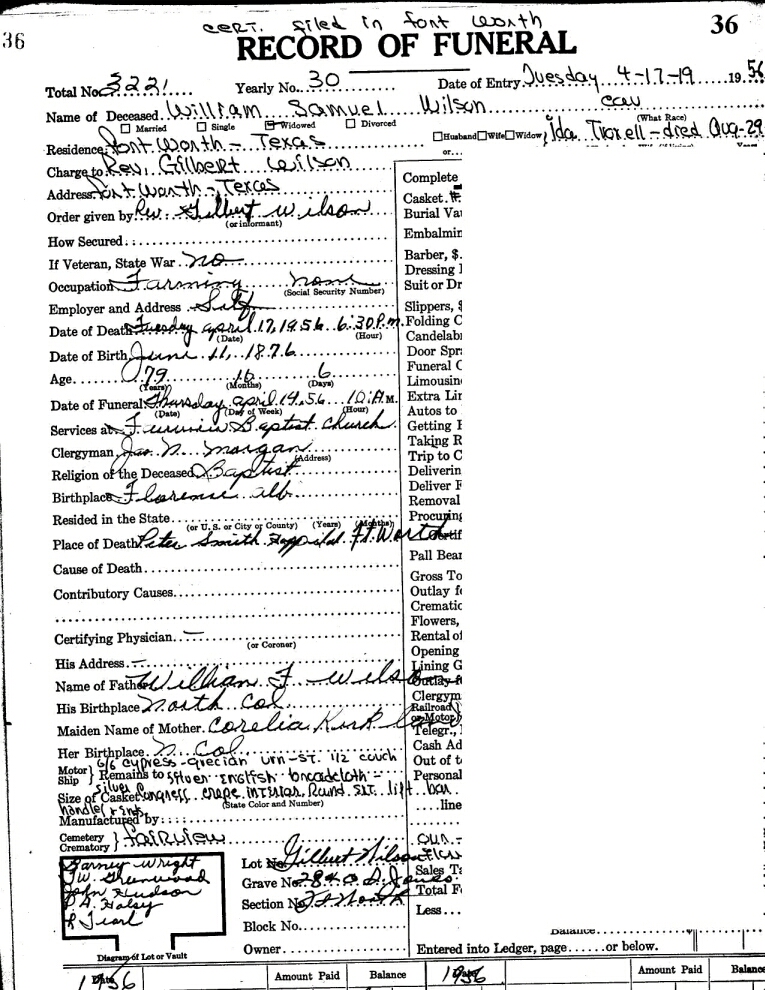 CERT. filed in fort worth
36 RECORD OF FUNERAL 36
Total No. 3221 Yearly No. 30 Date of Entry Tuesday 4-17-19 19 56
Name of Deceased William Samuel Wilson cau
(What Race)
Married Single Widowed Divorced Husband Wife Widow Ida Troxell - died Aug-29
Residence Fort Worth - Texas or...
Charge to Rev. Gilbert Wilson
Address Fort Worth - Texas
Order given by Rev. Gilbert Wilson
(or informant)
How Secured
If Veteran, State War no
Occupation Farming none
(Social Security Number)
Employer and Address Self
Date of Death Tuesday april 17, 1956 6:30 P.M.
(Date) (Hour)
Date of Birth June 11, 1876
Age 79 10 6
(Years) (Months) (Days)
Date of Funeral Thursday april 19, 56 10 A.M.
(Date) (Day of Week) (Hour)
Services at Baptist Church
Clergyman Jas. N. Morgan
(Address)
Religion of the Deceased Baptist
Birthplace Florence alb.
Resided in the State
(or U. S. or City or County) (Years) (Months)
Place of Death Peter Smith Hospital Ft. Worth
Cause of Death
Contributory Causes
Certifying Physician
(or Coroner)
His Address
Name of Father William F. Wilson
His Birthplace North Col
Maiden Name of Mother Corelia Kirk
Her Birthplace N. Col
6/6 cypress - grecian urn - st. 1/2 couch
Motor Ship } Remains to silver English broadcloth -
silver
Size of Casket congress. crepe interior. Round lift bar
(State Color and Number)
handles
Manufactured by
Cemetery Crematory } fairview
Barney Wright
J.W. Greenwood
John Hudson
Halsy
Diagram of Lot or Vault
Lot No. Gilbert Wilson
Grave No. 2840
Section No. Ft Worth
Block No.
Owner
Complete
Casket. #
Burial Va
Embalmin
Barber, $.
Dressing
Suit or Dr
Slippers, $
Folding C
Candelab
Door Spr
Funeral C
Limousin
Extra Li
Autos to
Getting
Taking R
Trip to C
Deliverin
Deliver F
Removal
Procuring
Certif
Pall Bear
Gross To
Outlay f
Crematic
Flowers,
Rental of
Opening
Lining G
Outlay
Clergym
Railroad
or Motor
Telegr.,
Cash Ad
Out of t
Personal
line
our -
Flow
Sales T
Total F
Less
Balance
Entered into Ledger, page......or below.
1956 Date Amount Paid Balance 1956 Date Amount Paid Balance